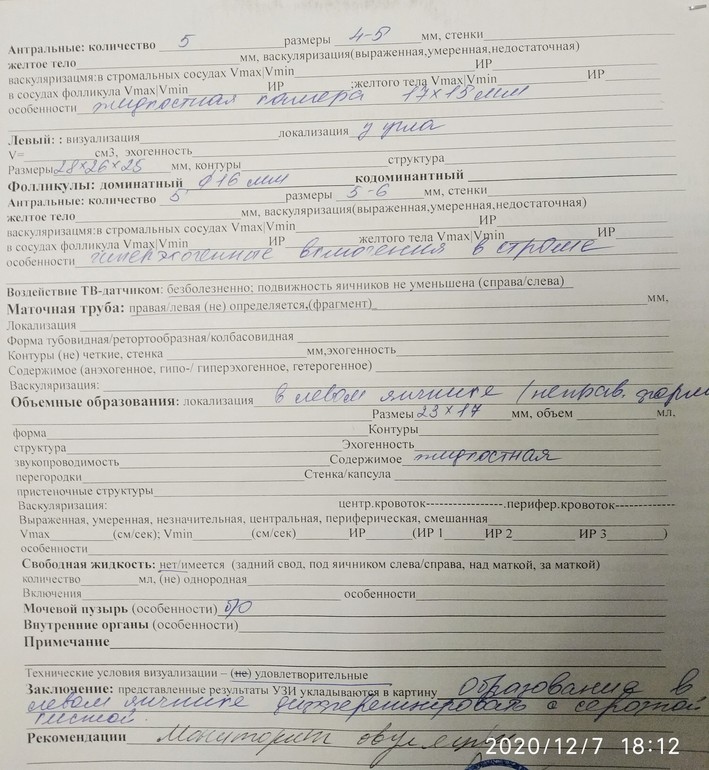 Антральные: количество 5 размеры 4-5 мм, стенки
желтое тело мм, васкуляризация(выраженная,умеренная,недостаточная)
васкуляризацмя:в стромальных сосудах Vmax|Vmin ИР
в сосудах фолликула Vmax|Vmin ИР ;желтого тела Vmax|Vmin ИР
особенности жидкостная камера 17×15 мм
Левый: : визуализация локализация у угла
V= см3, эхогенность
Размеры 28×26×25 мм, контуры структура
Фолликулы: доминатный ∅16 мм кодоминантный
Антральные: количество 5 размеры 5-6 мм, стенки
желтое тело мм, васкуляризация(выраженная,умеренная,недостаточная)
васкуляризация:в стромальных сосудах Vmax|Vmin ИР
в сосудах фолликула Vmax|Vmin ИР желтого тела Vmax|Vmin ИР
особенности гиперэхогенные включения в строме
Воздействие ТВ-датчиком: безболезненно; подвижность яичников не уменьшена (справа/слева)
Маточная труба: правая/левая (не) определяется,(фрагмент) мм,
Локализация
Форма тубовидная/ретортообразная/колбасовидная
Контуры (не) четкие, стенка мм,эхогенность
Содержимое (анэхогенное, гипо-/ гиперэхогенное, гетерогенное)
Васкуляризация:
Объемные образования: локализация в левом яичнике /неправ. форм
Размеы 23×17 мм, объем мл,
форма Контуры
структура Эхогенность
звукопроводимость Содержимое жидкостная
перегородки Стенка/капсула
пристеночные структуры
Васкуляризация: центр.кровоток---------------.перифер.кровоток------------
Выраженная, умеренная, незначительная, центральная, периферическая, смешанная
Vmax (см/сек); Vmin (см/сек) ИР (ИР 1 ИР 2 ИР 3 )
особенности
Свободная жидкость: нет/имеется (задний свод, под яичником слева/справа, над маткой, за маткой)
количество мл, (не) однородная
Включения особенности
Мочевой пузырь (особенности) б/о
Внутренние органы (особенности)
Примечание
Технические условия визуализации – (не) удовлетворительные
Заключение: представленные результаты УЗИ укладываются в картину Образования в
левом яичнике дифференцировать с серозной
кистой.
Рекомендации Мониторинг овуляции
2020/12/7 18:12